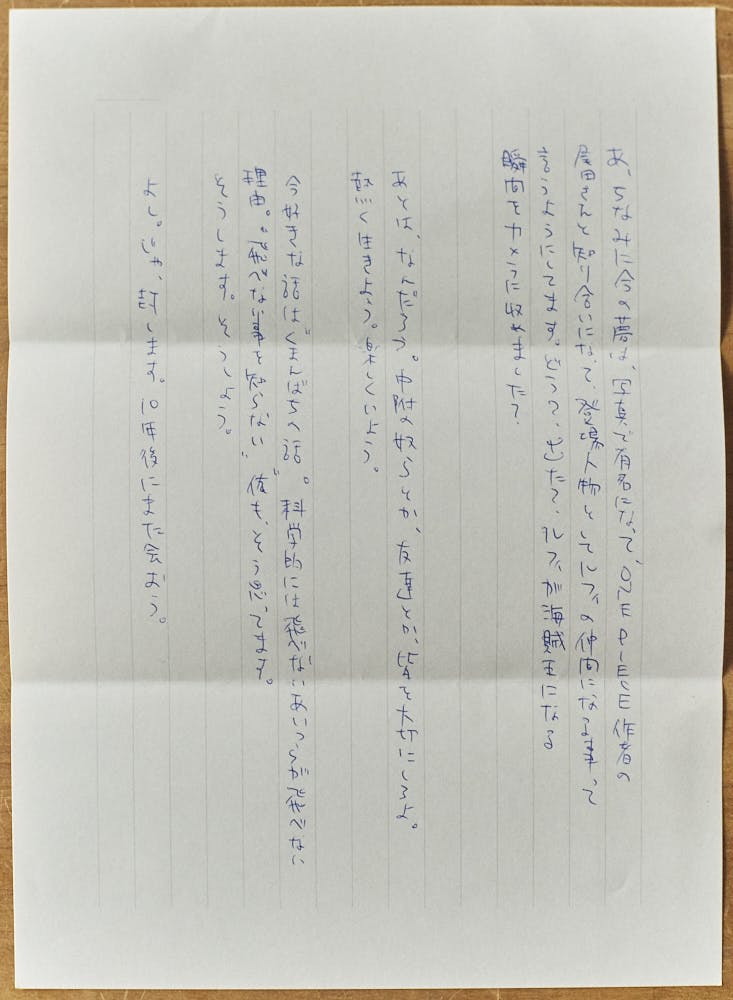 あ、ちなみに今の夢は、写真で有名になって、ONE PIECE 作者の
尾田さんと知り合いになって、登場人物としてルフィの仲間になる事って
言うようにしてます。どうっスか、ルフィが海賊王になる
瞬間をカメラに収めましたか？
あとは、なんだろう。中附の奴らとか、友達とか、皆を大切にしろよ。
熱く生きよう。楽しくいよう。
今好きな話は“くまんばちの話”。科学的には飛べないあいつらが飛べない
理由。“飛べない事を知らない”俺も、そう思ってます。
そうします。そうしよう。
よし。じゃ、封します。10年後にまた会おう。